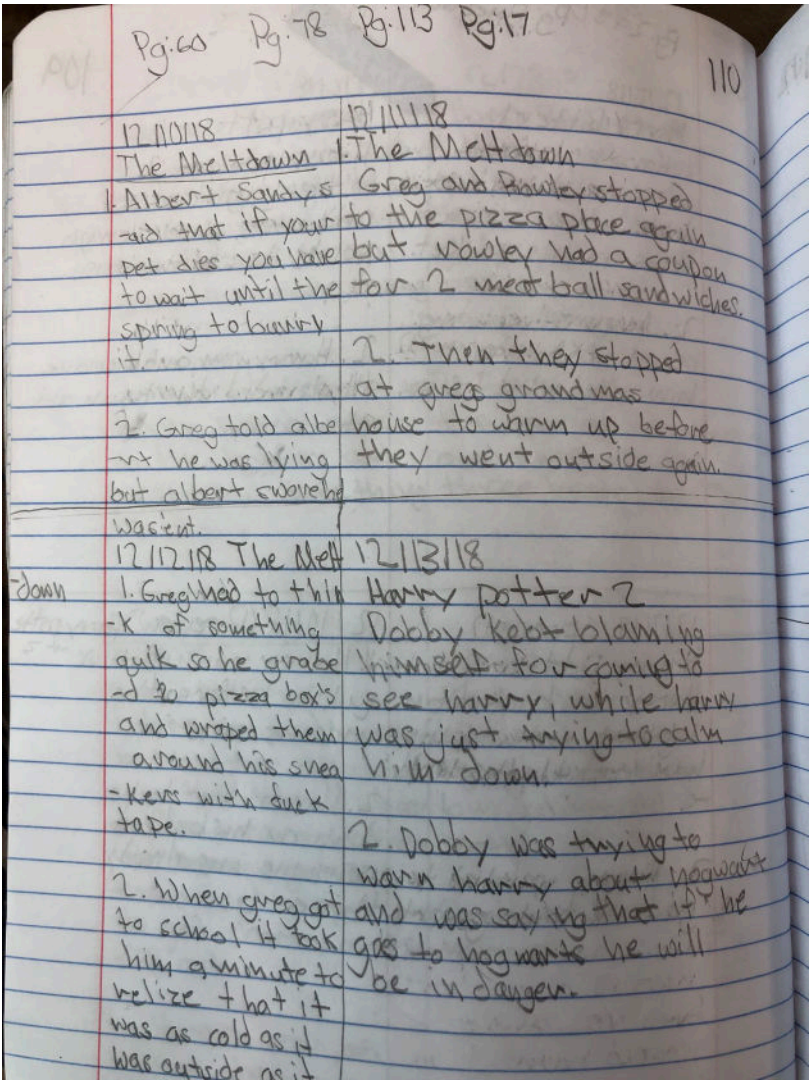 Pg:60 Pg:78 Pg:113 Pg:17
110
12/10/18
The Meltdown
1. Albert Sandys
-aid that if your
pet dies you have
to wait until the
spring to burry
it.
2. Greg told albe
-rt he was lying
but albert swore he
was'ent.
12/11/18
1. The Meltdown
Greg and Rowley stopped
to the pizza place again
but rowley had a coupon
for 2 meat ball sandwiches.
2. Then they stopped
at gregs grandmas
house to warm up before
they went outside again.
12/12/18 The Melt
-down
1. Greg had to thin
-k of something
quik so he grabe
-d 2 pizza box's
and wraped them
around his snea
-kers with duck
tape.
2. When greg got
to school it took
him a minute to
relize that it
was as cold as it
was outside as it
12/13/18
Harry potter 2
Dobby kebt blaming
himself for coming to
see harry, while harry
was just trying to calm
him down.
2. Dobby was trying to
warn harry about hogwart
and was saying that if he
goes to hogwarts he will
be in danger.